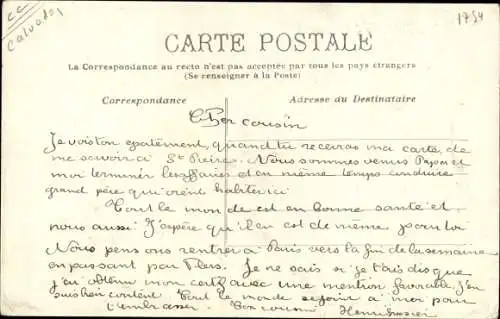 CC
Calvados
1754
CARTE POSTALE
La Correspondance au recto n'est pas acceptée par tous les pays étrangers
(Se renseigner à la Poste)
Correspondance
Adresse du Destinataire
Cher cousin
Je vois ton épatement, quand tu recevras ma carte, de
me savoir à St Pierre. Nous sommes venus Papa et
moi terminer les affaires et en même temps conduire
grand père qui vient habiter ici
Tout le monde est en bonne santé et
nous aussi J'espère qu'il en est de même pour toi
Nous pensons rentrer à Paris vers la fin de la semaine
en passant par Flers. Je ne sais si je t'ai dis que
j'ai obtenu mon certif avec une mention favorable. J'en
suis bien content. Tout le monde se joint à moi pour
t'embrasser. Ton cousin